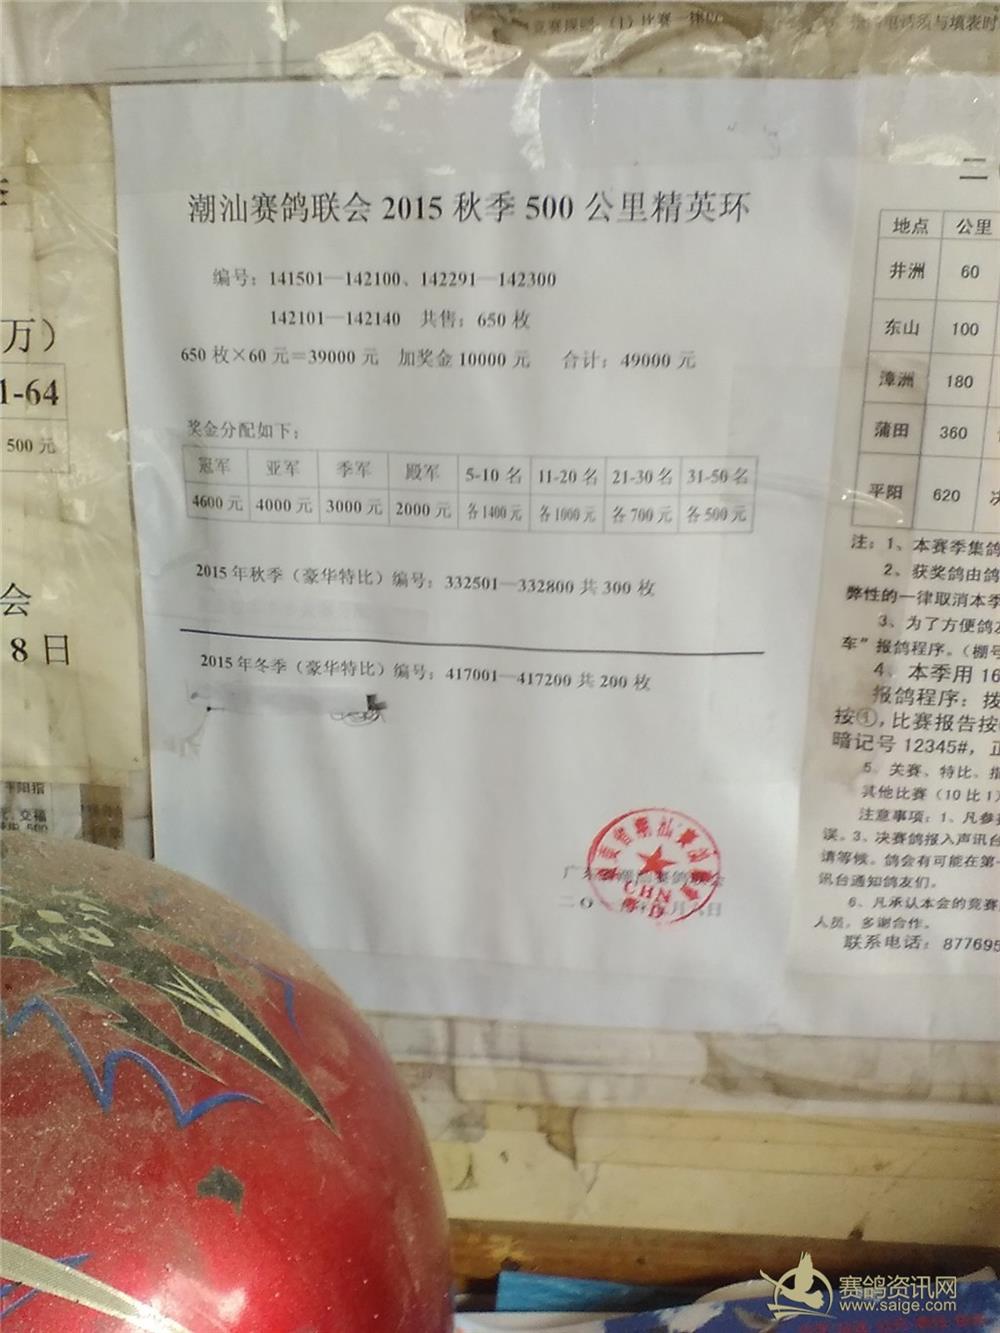 竞赛规则：（1）比赛一律以
电话须与填表时
潮汕赛鸽联会 2015 秋季 500 公里精英环
编号：141501—142100、142291—142300
142101—142140 共售：650 枚
650 枚×60 元＝39000 元 加奖金 10000 元 合计：49000 元
奖金分配如下：
冠军 亚军 季军 殿军 5-10 名 11-20 名 21-30 名 31-50 名
4600 元 4000 元 3000 元 2000 元 各 1400 元 各 1000 元 各 700 元 各 500 元
2015 年秋季（豪华特比）编号：332501—332800 共 300 枚
2015 年冬季（豪华特比）编号：417001—417200 共 200 枚
CHN
万）
1-64
500 元
会
8 日
平阳指
交福
500
二
地点 公里
井洲 60
东山 100
漳洲 180
蒲田 360
平阳 620 决
注：1、本赛季集鸽
2、获奖鸽由鸽
弊性的一律取消本季
3、为了方便鸽友
车”报鸽程序。（棚号
4、本季用 16
报鸽程序：拨
按①，比赛报告按
暗记号 12345#，正
5、关赛、特比、指
其他比赛（10 比 1）
注意事项：1、凡参赛
误。3、决赛鸽报入声讯台
请等候。鸽会有可能在第一
讯台通知鸽友们。
6、凡承认本会的竞赛
人员，多谢合作。
联系电话：877695
赛鸽资讯网
www.saige.com